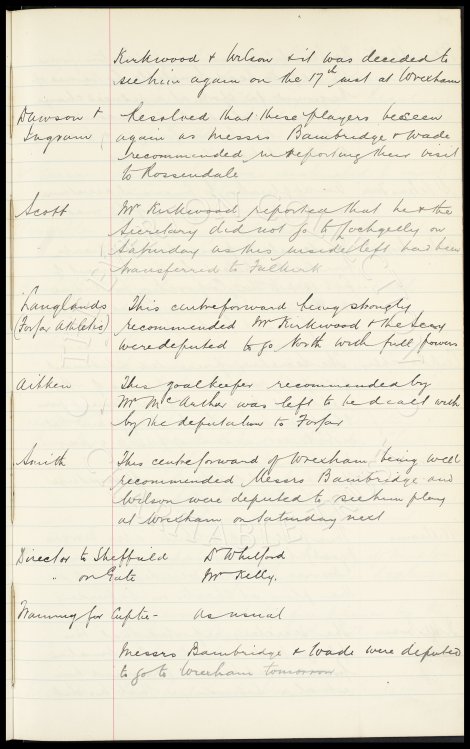 Kirkwood & Wilson & it was decided to
see him again on the 17th inst at Wrexham
Dawson & Ingram
Resolved that these players be seen
again as Messrs Bainbridge & Wade
recommended in reporting their visit
to Rossendale
Scott
Mr Kirkwood reported that he & the
Secretary did not go to Lochgelly on
Saturday as this inside left had been
transferred to Falkirk
Langlands
(Forfar Athletic)
This centreforward being strongly
recommended Mr Kirkwood & the Secy
were deputed to go North with full powers
Aitken
This goalkeeper recommended by
Mr McArthur was left to be dealt with
by the deputation to Forfar
Smith
This centreforward of Wrexham being well
recommended Messrs Bainbridge and
Wilson were deputed to see him play
at Wrexham on Saturday next
Director to Sheffield Dr Whitford
" on Gate Mr Kelly.
Training for Cuptie - as usual
Messrs Bainbridge & Wade were deputed
to go to Wrexham tomorrow